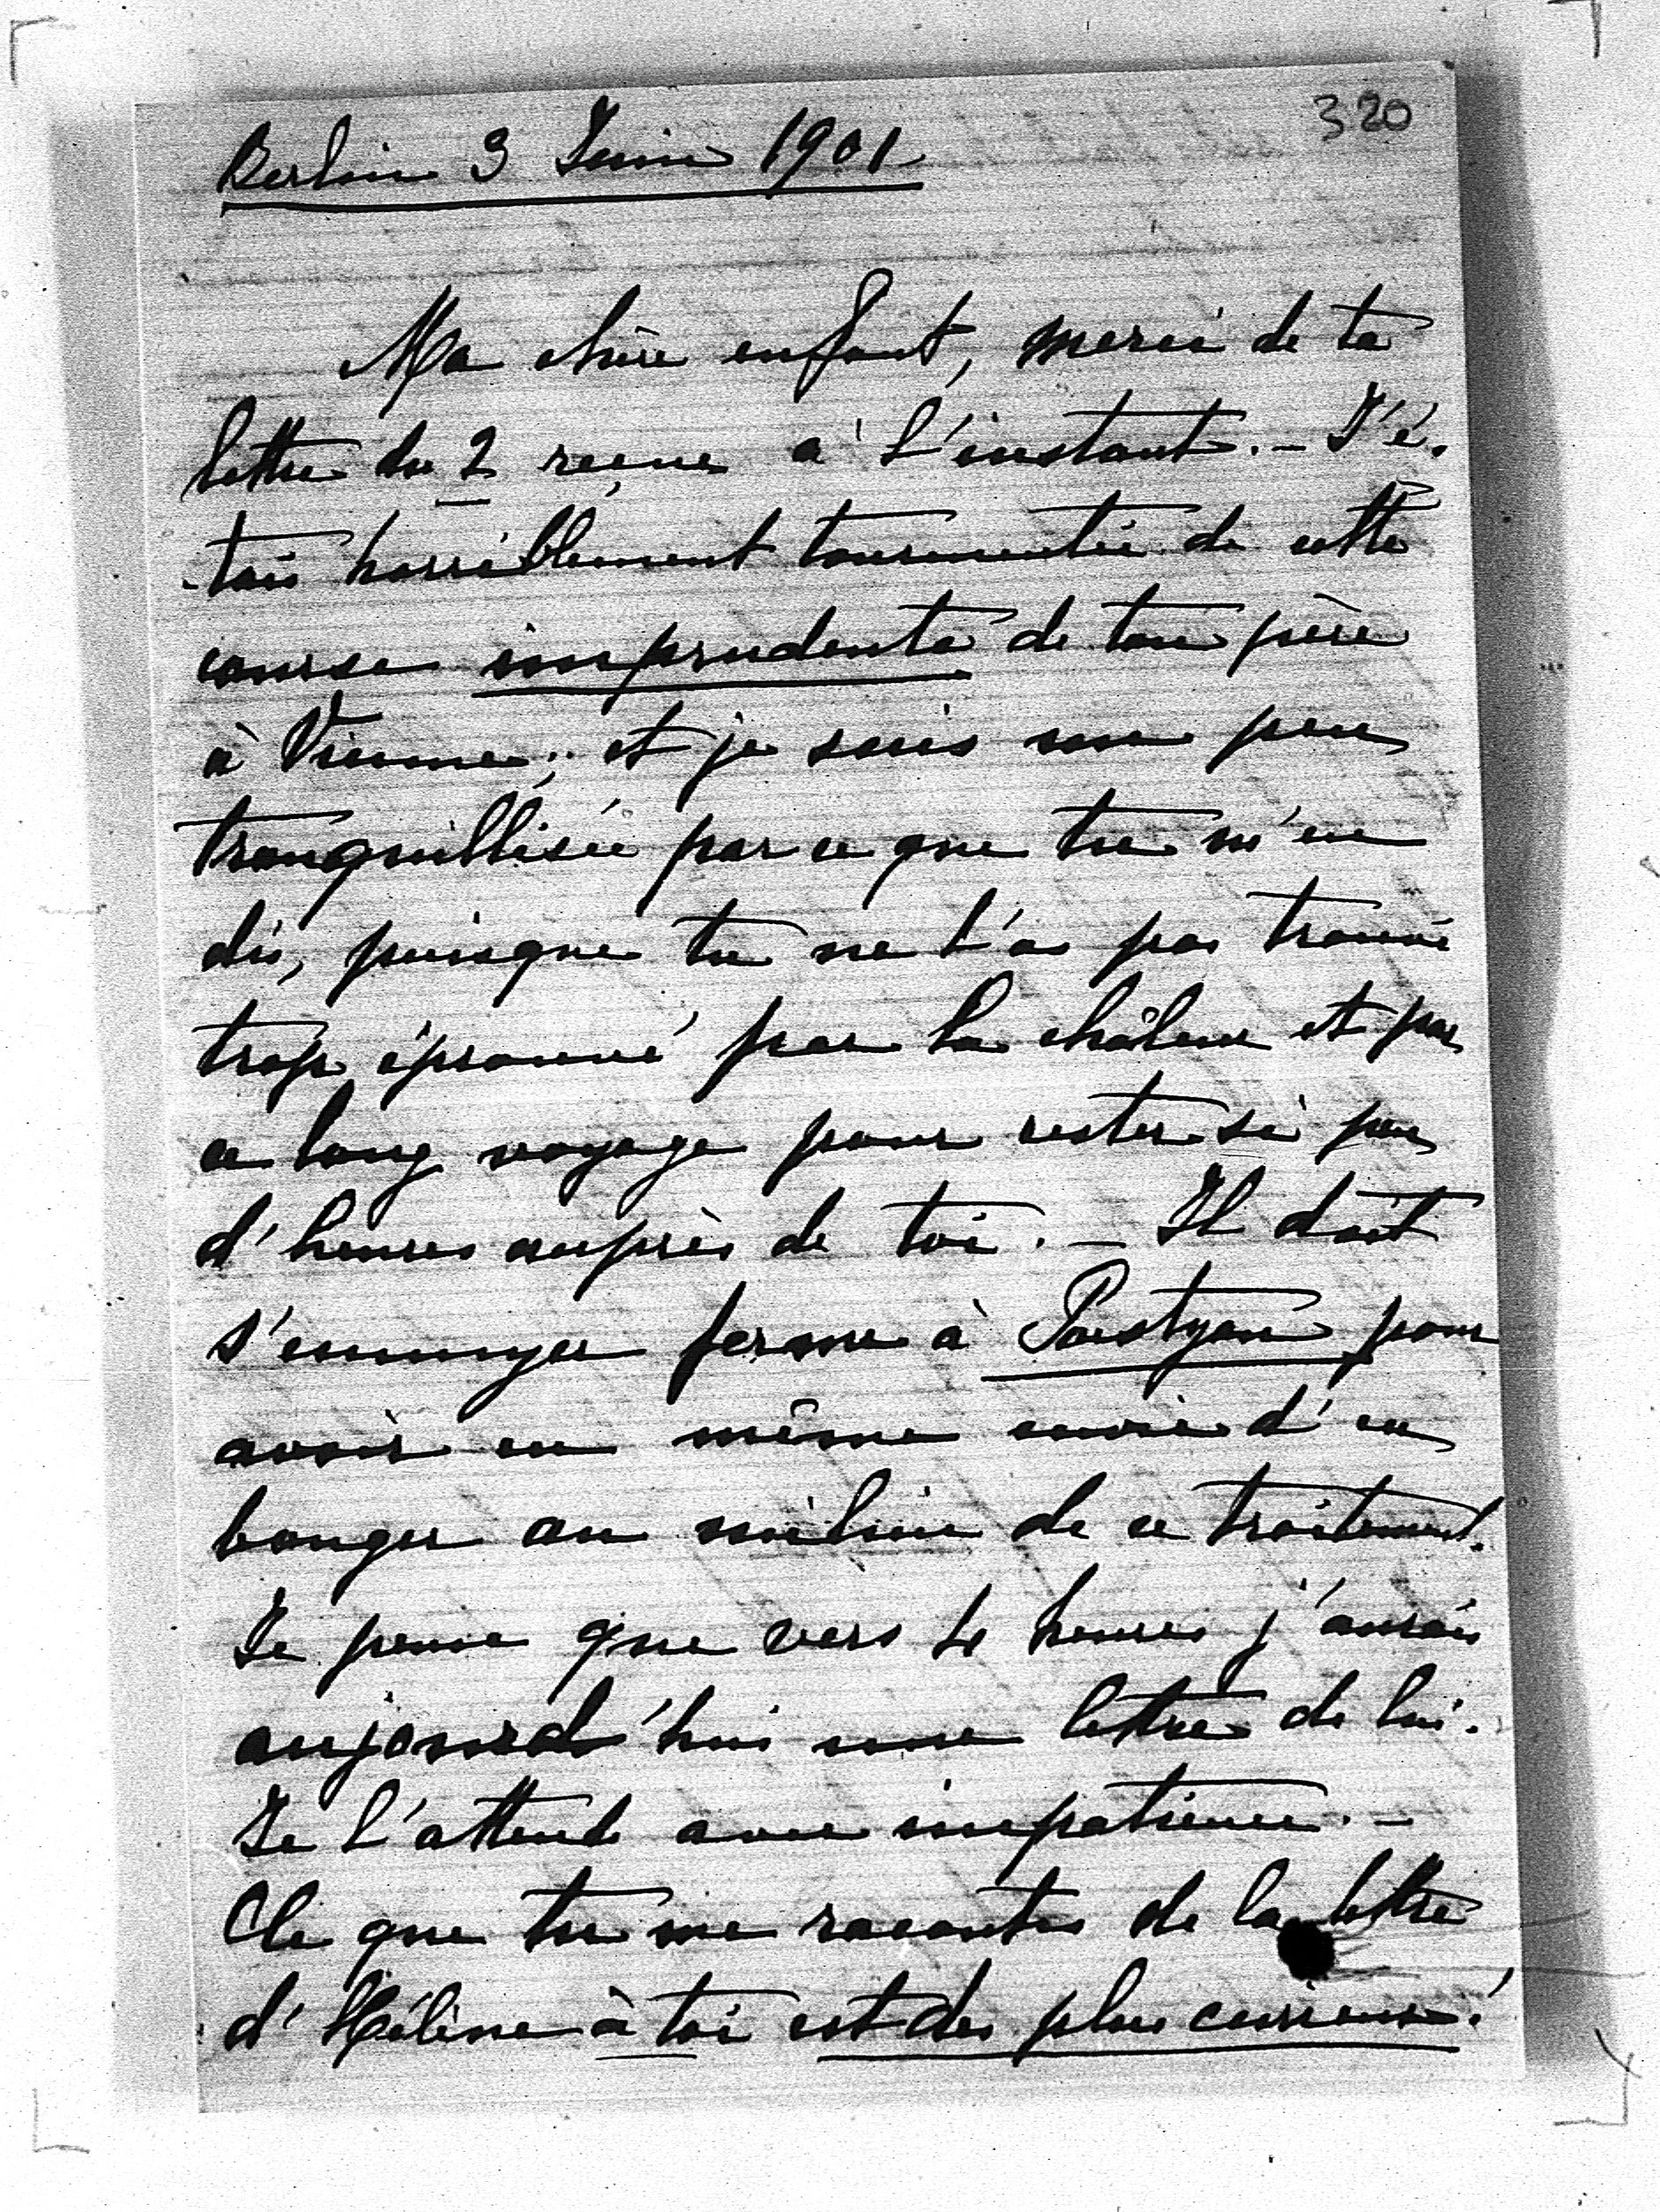 320
Berlin 3 Juin 1901
Ma chère enfant, merci de ta
lettre du 2 reçue à l'instant. – J'é-
-tais horriblement tourmentée de cette
course imprudente de ton père
à Vienne; et je suis un peu
tranquillisée par ce que tu m'en
dis, puisque tu ne l'as pas trouvé
trop éprouvé par la châleur et par
ce long voyage pour rester si peu
d'heures auprès de toi. – Il doit
s'ennuyer ferme à Pöstyen pour
avoir eu même envie d'en
bouger au milieu de ce traitement.
Je pense que vers 4 heures j'aurais
aujourd'hui une lettre de lui.
Je l'attends avec impatience. –
Ce que tu me racontes de la lettre
d'Hélène à toi est des plus curieux!